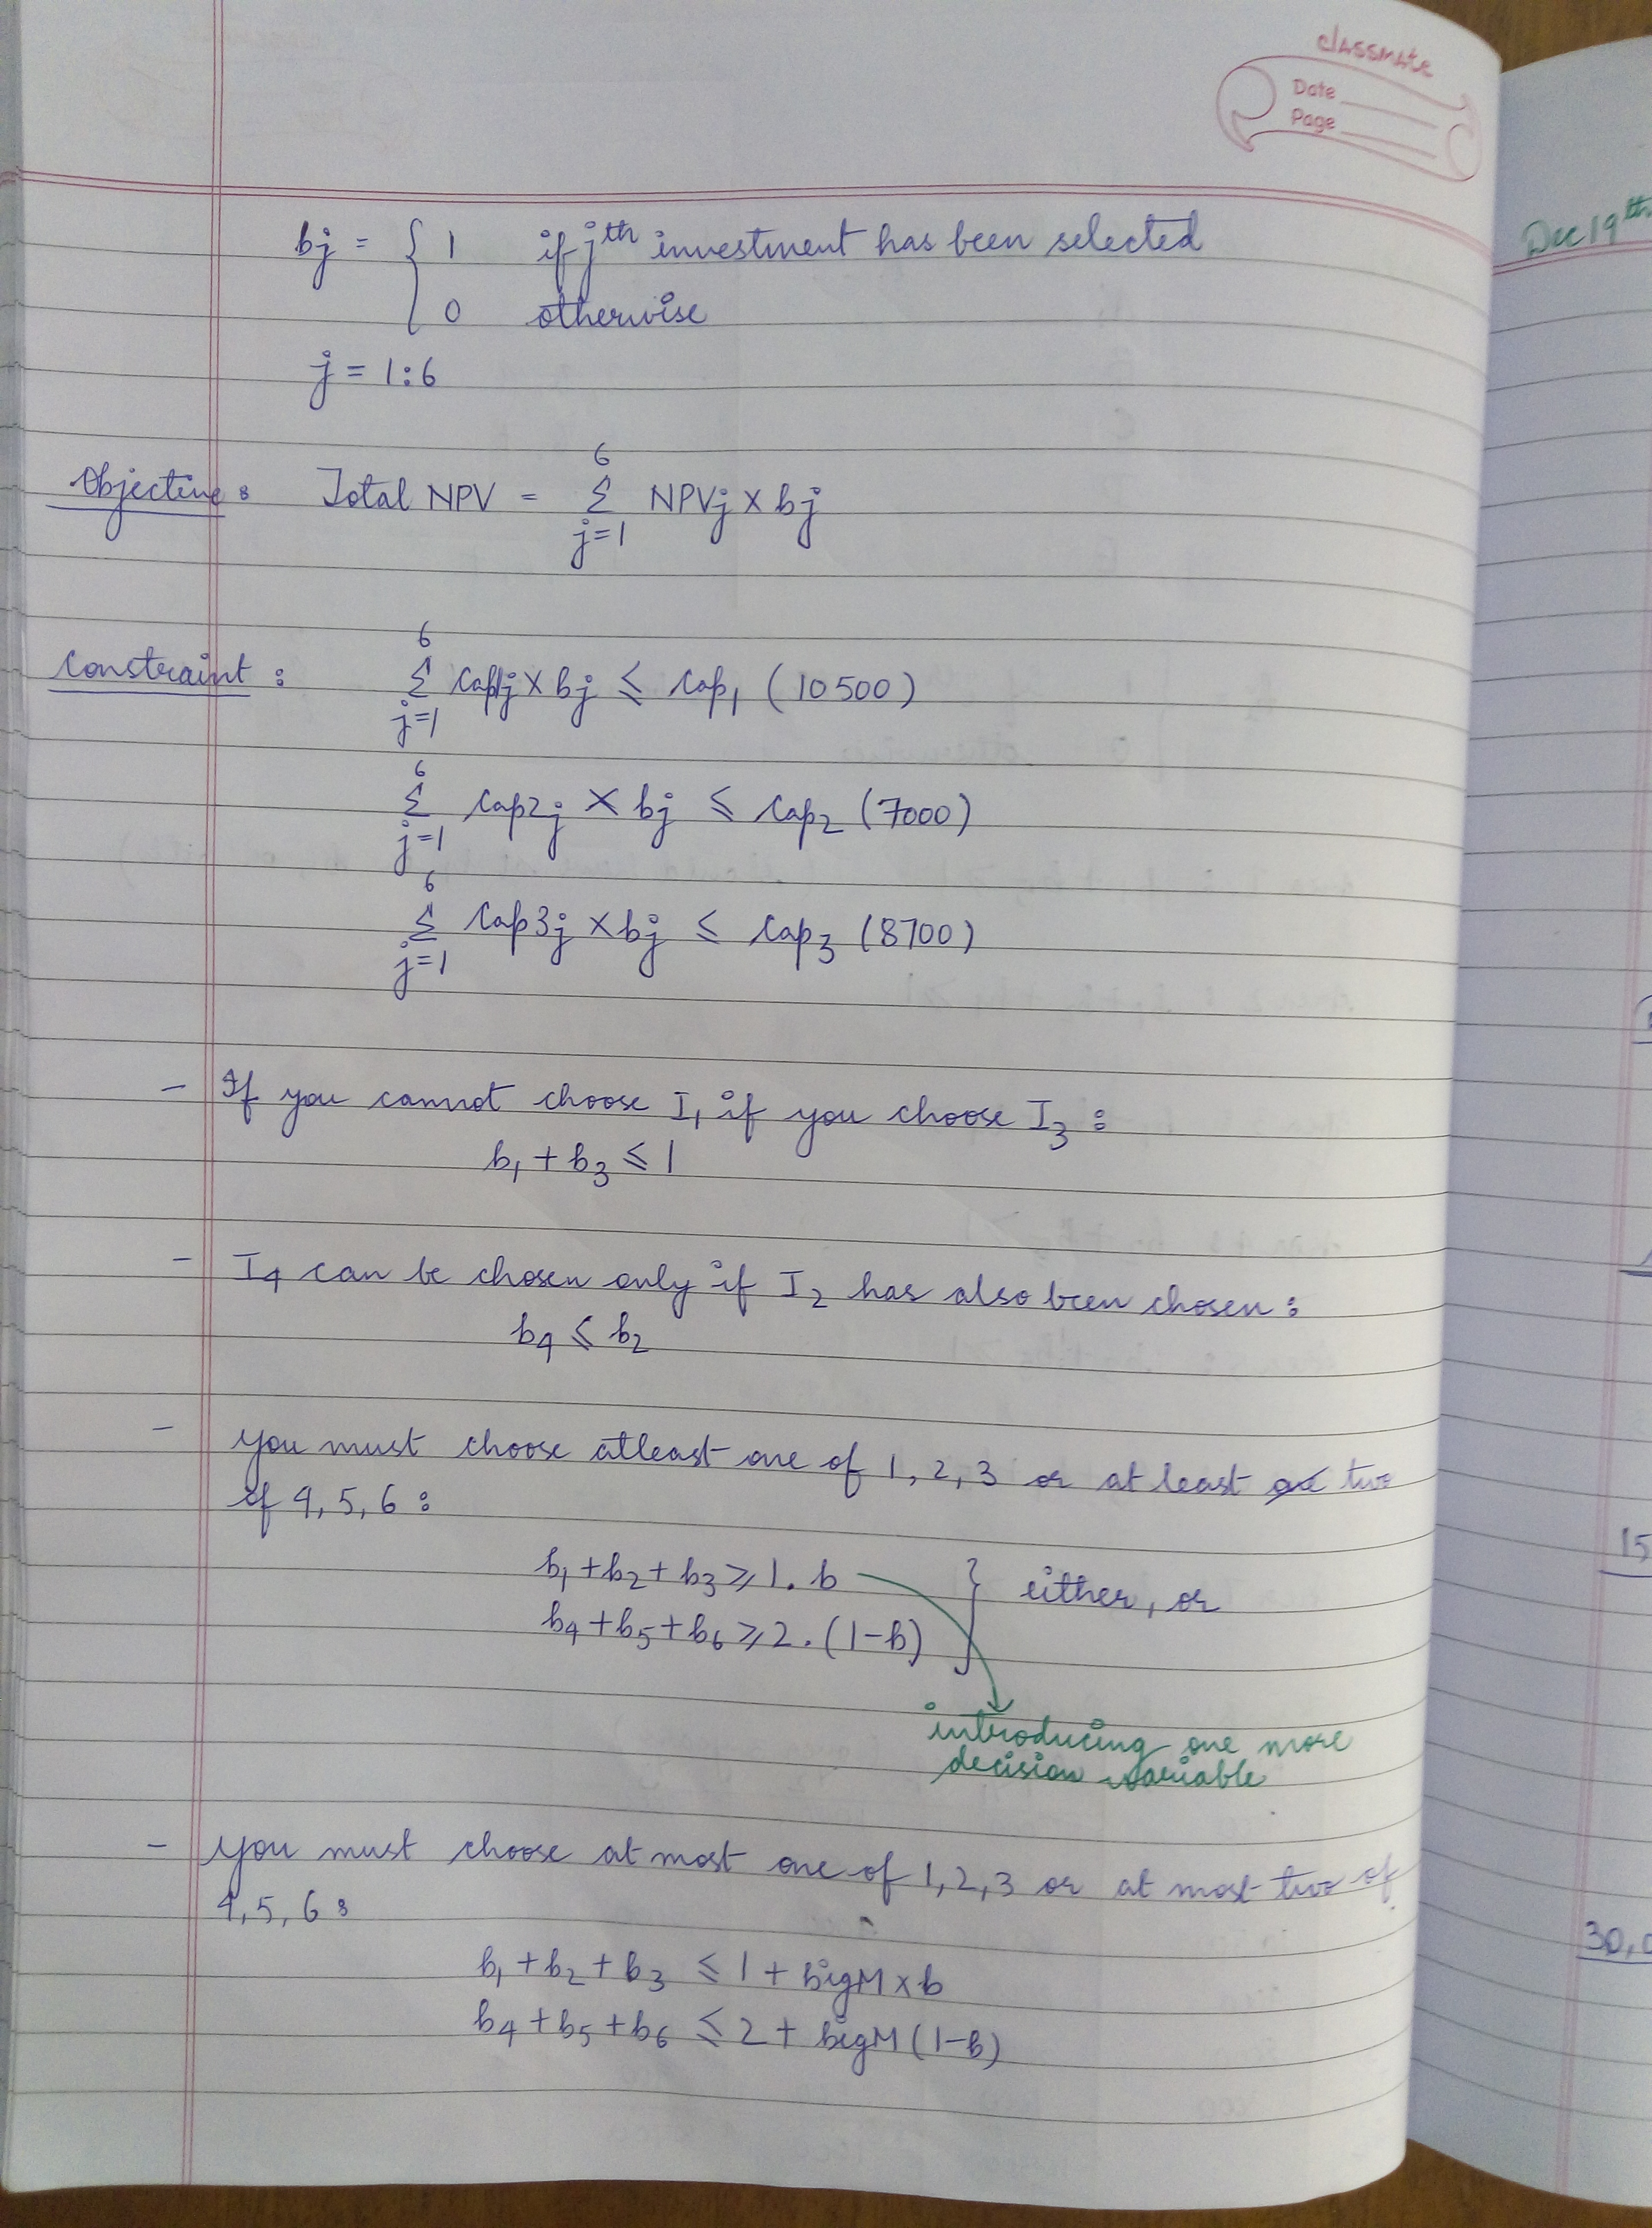 classmate
Date
Page
Dec 19th
bj = { 1 if jth investment has been selected
0 otherwise
j = 1:6
Objective: Total NPV = 6 Σ j=1 NPVj × bj
Constraint: 6 Σ j=1 Cap1j × bj ≤ Cap1 (10500)
6 Σ j=1 Cap2j × bj ≤ Cap2 (7000)
6 Σ j=1 Cap3j × bj ≤ Cap3 (8700)
- If you cannot choose I1 if you choose I3 :
b1 + b3 ≤ 1
- I4 can be chosen only if I2 has also been chosen :
b4 ≤ b2
- You must choose atleast one of 1, 2, 3 or at least two
of 4, 5, 6 :
b1 + b2 + b3 ≥ 1. b
b4 + b5 + b6 ≥ 2. (1-b) } either, or
introducing one more
decision variable
- You must choose at most one of 1, 2, 3 or at most two of
4, 5, 6 :
b1 + b2 + b3 ≤ 1 + bigM × b
b4 + b5 + b6 ≤ 2 + bigM (1-b)
15
30,